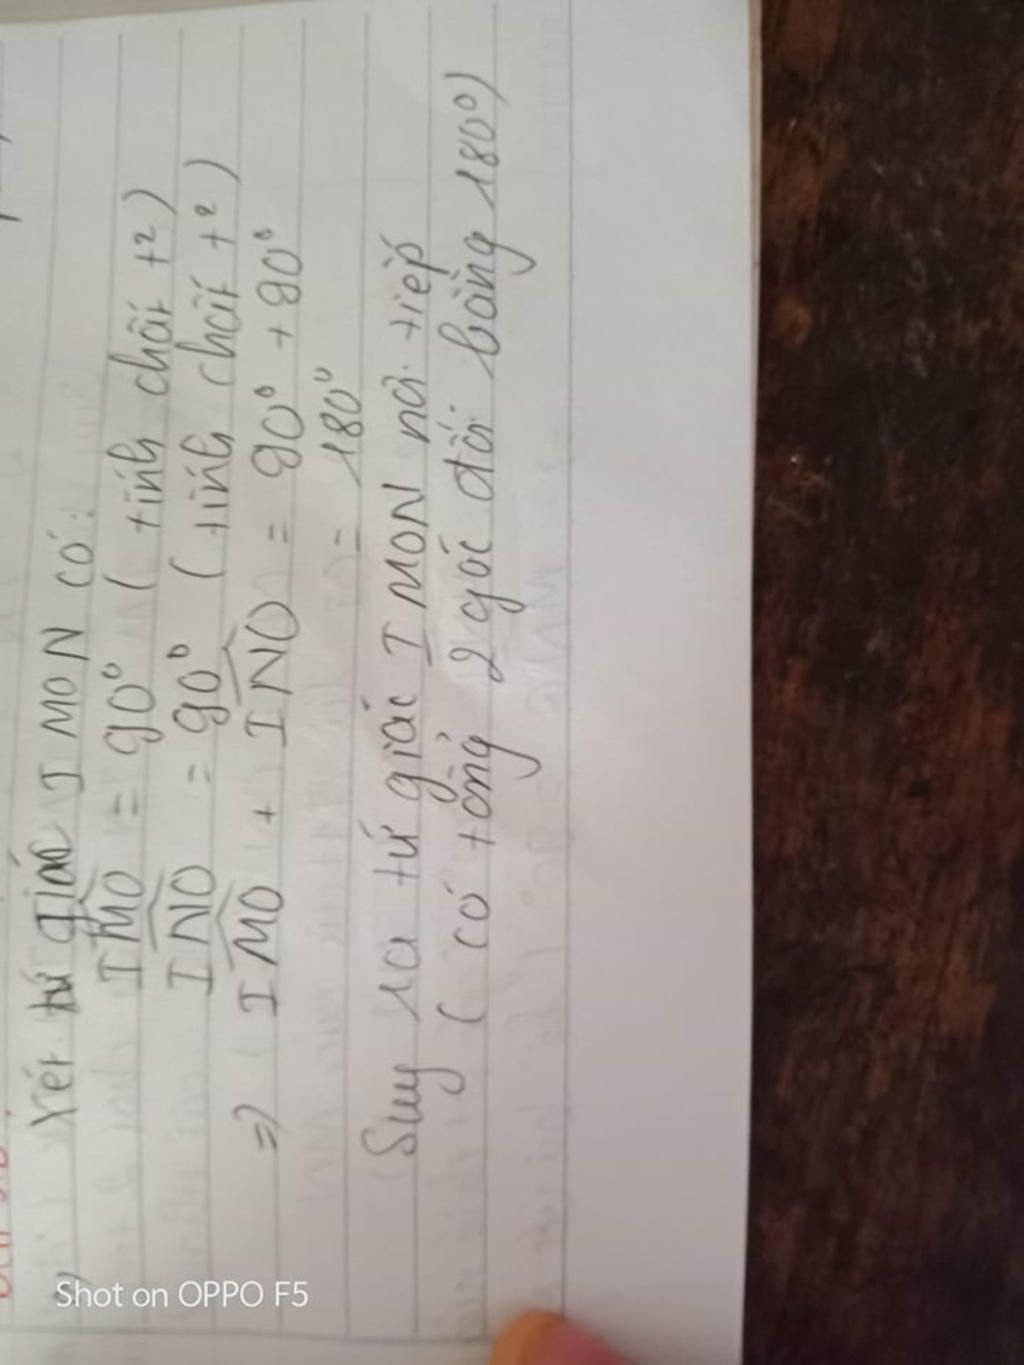 Xét tứ giác IMON có:
IMO = 90° (tính chất t²)
INO = 90° (tính chất t²)
=> IMO + INO = 90° + 90°
= 180°
Suy ra tứ giác IMON nội tiếp
(có tổng 2 góc đối bằng 180°)
Shot on OPPO F5